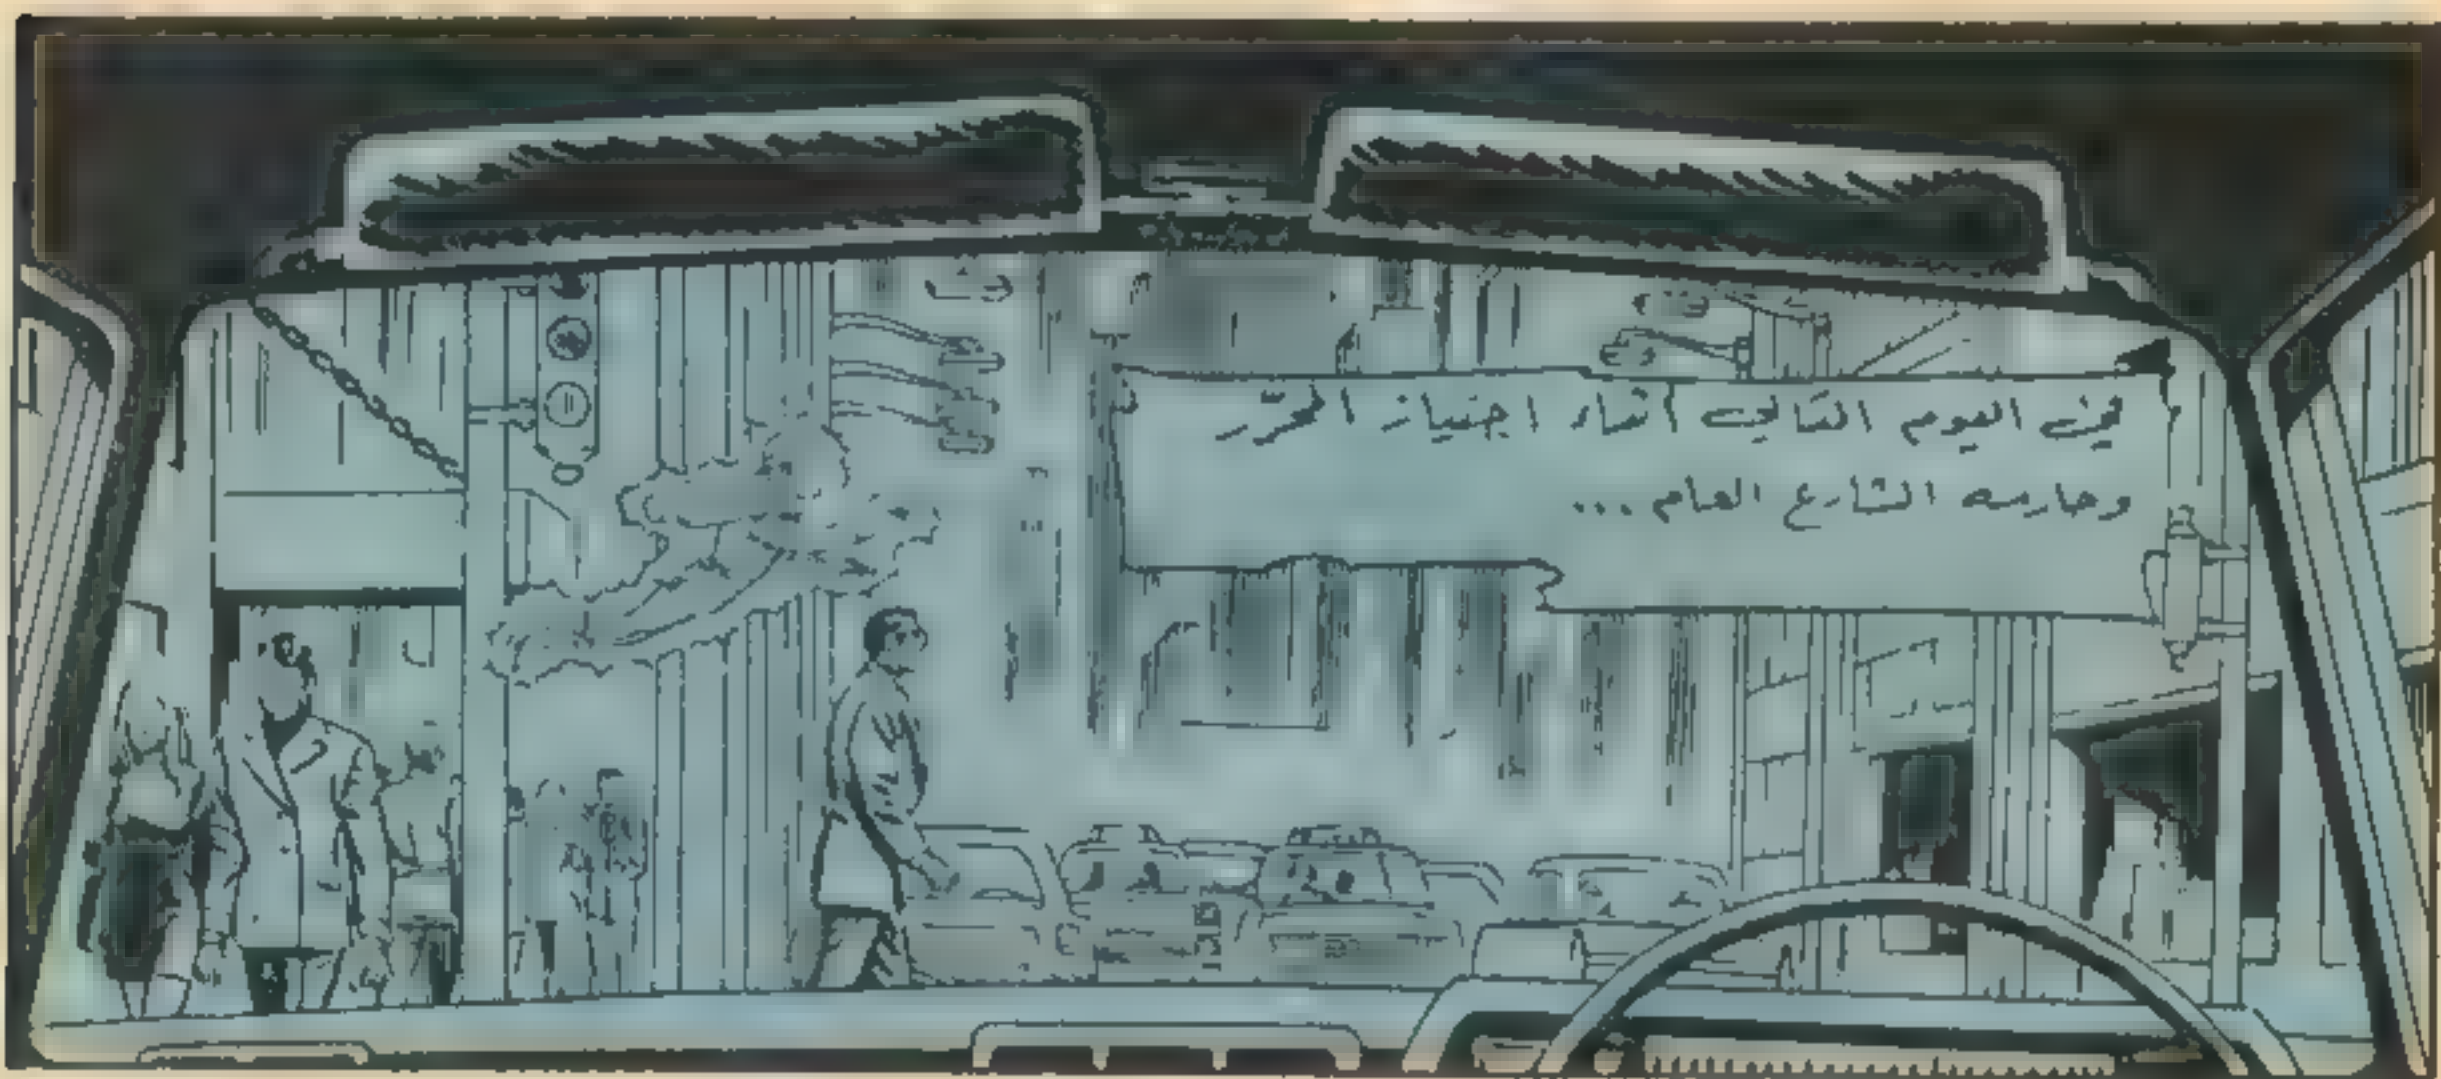 في اليوم التالي أثناء اجتياز المحرّر
وحارسه الشارع العام ...